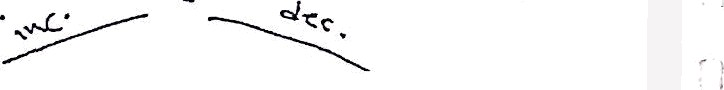 inc.
dec.